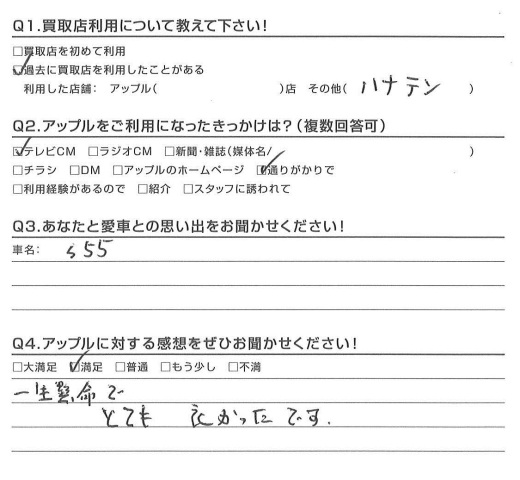 Q1.買取店利用について教えて下さい！
□買取店を初めて利用
☑過去に買取店を利用したことがある
利用した店舗： アップル（ ）店 その他（ ハナテン ）
Q2.アップルをご利用になったきっかけは？（複数回答可）
☑テレビCM □ラジオCM □新聞・雑誌（媒体名/ ）
□チラシ □DM □アップルのホームページ ☑通りがかりで
□利用経験があるので □紹介 □スタッフに誘われて
Q3.あなたと愛車との思い出をお聞かせください！
車名： S55
Q4.アップルに対する感想をぜひお聞かせください！
□大満足 ☑満足 □普通 □もう少し □不満
一生懸命で
とても 良かったです.